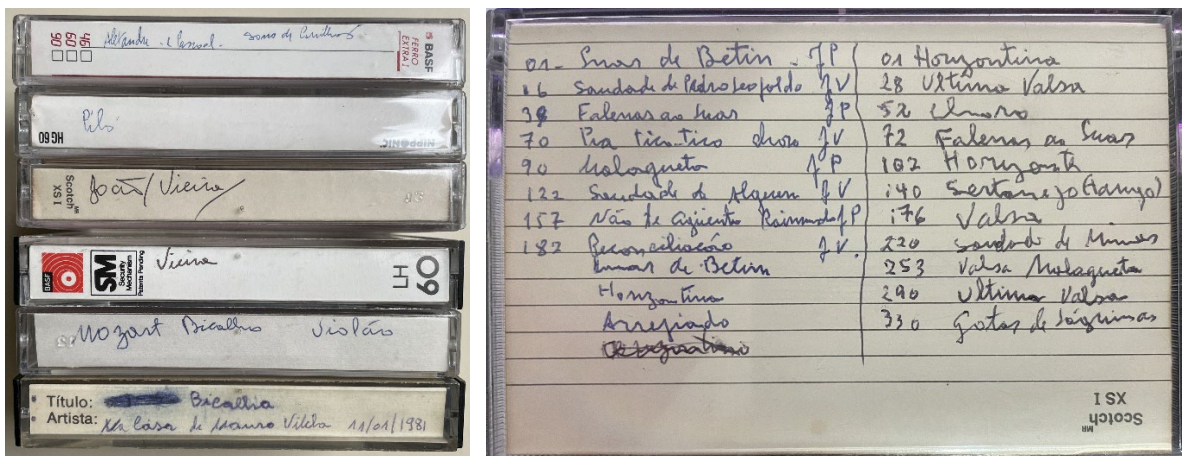 BASF
FERRO EXTRA I
46
60
90
Alexandre e Pascoal - Sons de Carrilhões
Piló
HG 60
NIPPONIC
João / Vieira
Scotch MR
XS I
BASF
SM
Security
Mechanism
Patents Pending
Vieira
60
LH
Mozart Bicalho Violão
Título: Bicalho
Artista: Na Casa de Mauro Vilela 11/01/1981
01 - Luar de Betin - JP
16 Saudade de Pedro Leopoldo JV
38 Falenas ao Luar JP
70 Pra tico-tico choro JV
90 Malagueta JP
122 Saudade de Alguem JV
157 Não te agüento Raimundo JP
182 Reconciliação JV.
Luar de Betin
Horizontina
Arrepiado
01 Horizontina
28 Ultima Valsa
52 Choro
72 Falenas ao Luar
102 Horizonte
140 Sertanejo (Tango)
176 Valsa
220 Saudade de Minas
253 Valsa Malagueta
290 Ultima Valsa
330 Gotas de Lágrimas
Scotch MR
XS I